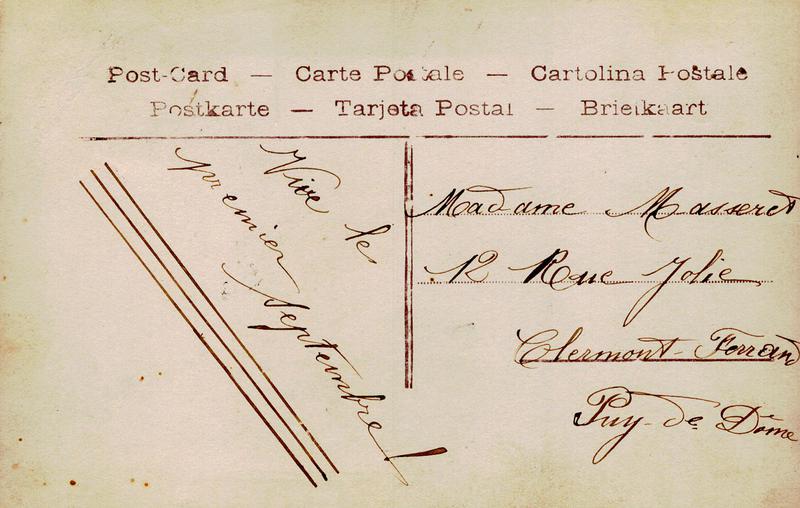 Post-Card — Carte Postale — Cartolina Postale
Postkarte — Tarjeta Postal — Briefkaart
Vive le
premier
septembre!
Madame Masseret
12 Rue Jolie
Clermont-Ferrand
Puy-de Dôme